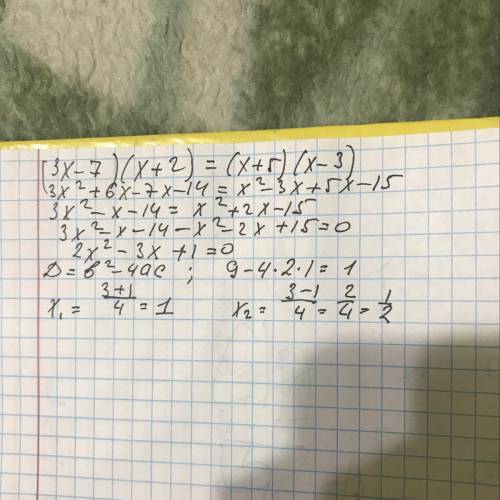 (3x-7)(x+2) = (x+5)(x-3)
3x²+6x-7x-14 = x²-3x+5x-15
3x²-x-14 = x²+2x-15
3x²-x-14-x²-2x+15=0
2x²-3x+1=0
D=b²-4ac ; 9-4·2·1=1
x₁ = (3+1)/4 = 1 x₂ = (3-1)/4 = 2/4 = 1/2